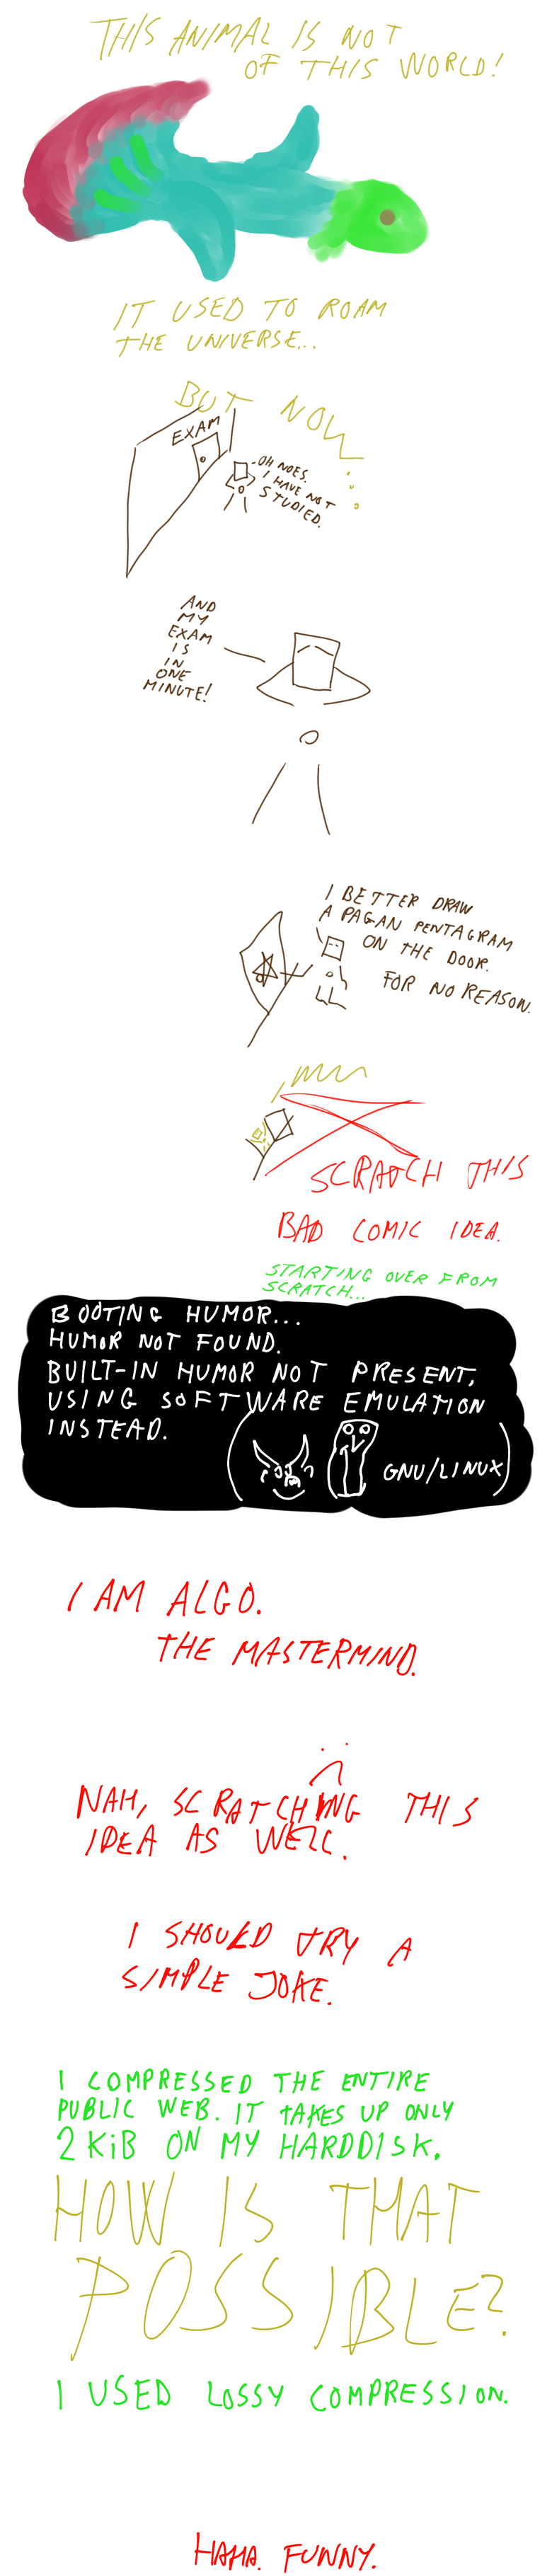 THIS ANIMAL IS NOT
OF THIS WORLD!
IT USED TO ROAM
THE UNIVERSE...
BUT NOW...
EXAM
OH NOES.
I HAVE NOT
STUDIED.
AND
MY
EXAM
IS
IN
ONE
MINUTE!
I BETTER DRAW
A PAGAN PENTAGRAM
ON THE DOOR.
FOR NO REASON.
SCRATCH THIS
BAD COMIC IDEA.
STARTING OVER FROM
SCRATCH...
BOOTING HUMOR...
HUMOR NOT FOUND.
BUILT-IN HUMOR NOT PRESENT,
USING SOFTWARE EMULATION
INSTEAD.
GNU/LINUX
I AM ALGO.
THE MASTERMIND.
NAH, SCRATCHING THIS
IDEA AS WELL.
I SHOULD TRY A
SIMPLE JOKE.
I COMPRESSED THE ENTIRE
PUBLIC WEB. IT TAKES UP ONLY
2 KiB ON MY HARDDISK.
HOW IS THAT
POSSIBLE?
I USED LOSSY COMPRESSION.
HAHA. FUNNY.